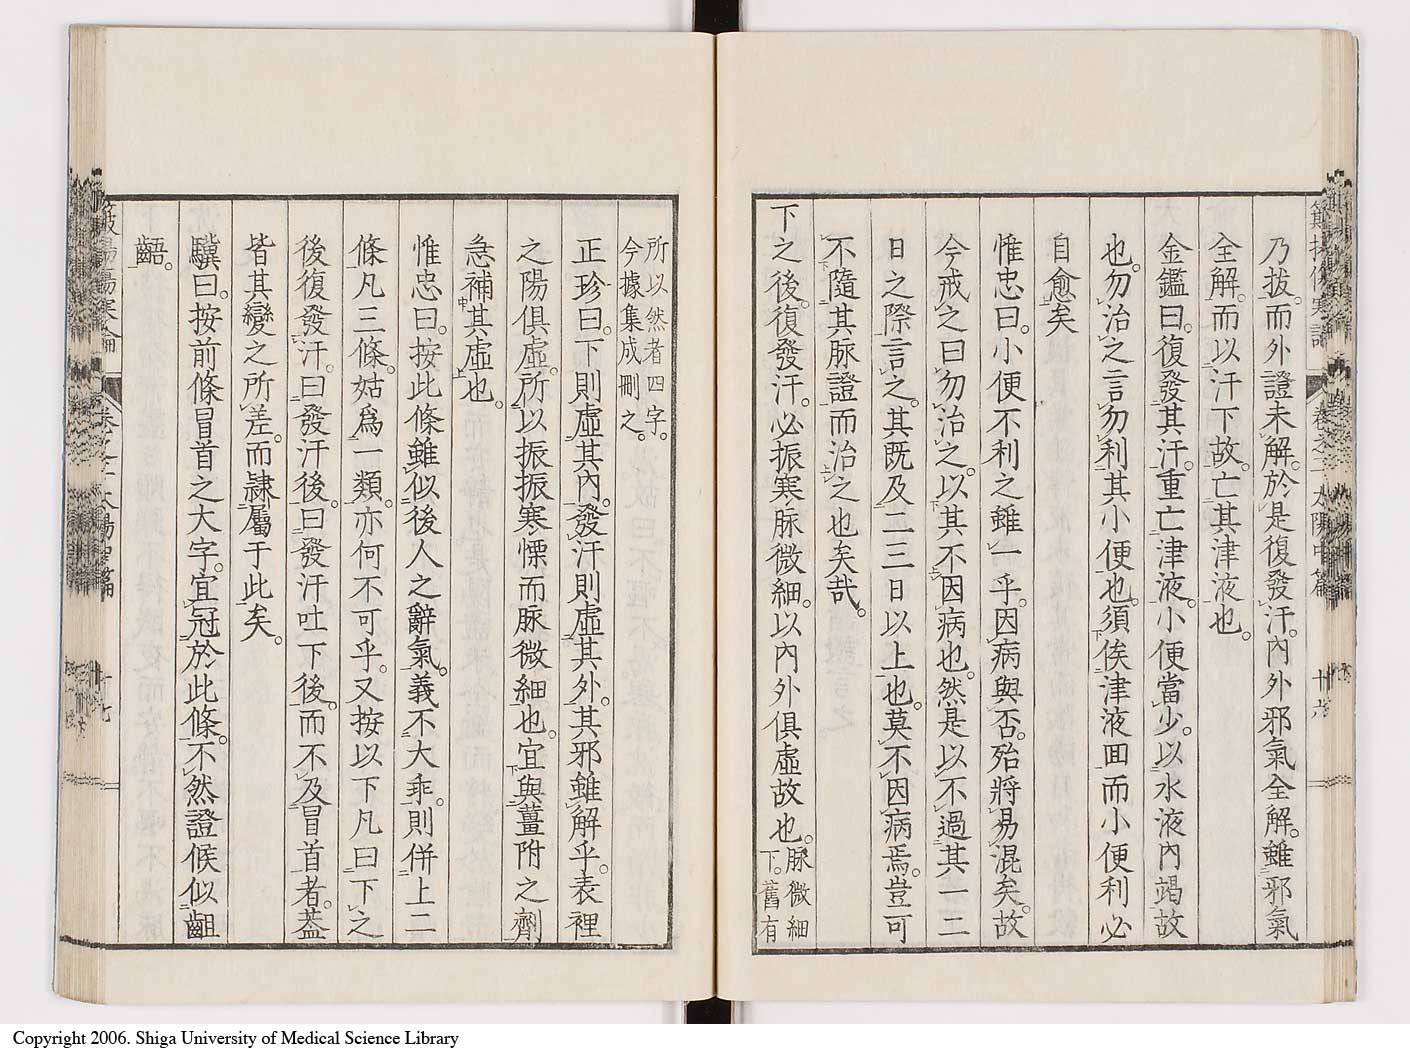 乃拔。而外證未解。於是復發汗。內外邪氣全解。雖邪氣
全解。而以汗下故。亡其津液也。
金鑑曰。復發其汗。重亡津液。小便當少。以水液內竭故
也。勿治之言。勿利其小便也。須俟津液回而小便利必
自愈矣
惟忠曰。小便不利之雖一乎。因病與否。殆將易混矣。故
今戒之曰勿治之。以其不因病也。然是以不過其一二
日之際言之。其既及二三日以上也。莫不因病焉。豈可
不隨其脉證而治之也矣哉。
下之後。復發汗。必振寒脉微細。以內外俱虛故也。脉微細
下。舊有
所以然者四字。
今據集成刪之。
正珍曰。下則虛其內。發汗則虛其外。其邪雖解乎。表裡
之陽俱虛。所以振振寒慄而脉微細也。宜與薑附之劑
急補其虛也。
惟忠曰。按此條雖似後人之辭氣。義不大乖。則併上二
條凡三條。姑爲一類。亦何不可乎。又按以下凡曰下之
後復發汗。曰發汗後。曰發汗吐下後。而不及冒首者。蓋
皆其變之所差。而隷屬于此矣。
驥曰。按前條冒首之大字。宜冠於此條。不然證候似齟
齬。
卷之二 太陽中篇 廿六